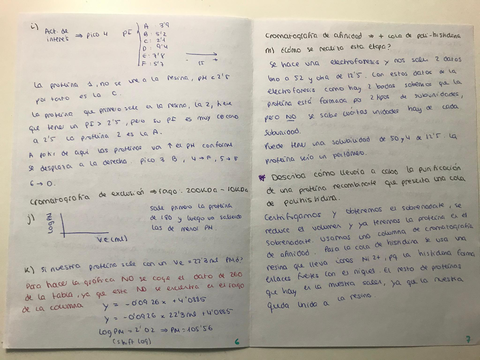 i) Act. de interés → pico 4
pI
A 7'9
B 5'2
D 9'4
F 5'3
La proteína 1, no se une a la resina, pH < 2'5
por tanto es la C.
La proteína que primero sale a la resina, la 2, tiene
que tener un pI > 2'5, pero su pI es muy cercano
a 2'5. La proteína 2 es la A.
A partir de aquí las proteínas van ↑ el pH conforme
se desplaza a la derecha pico 3 B, 4 → F, 5 → E
6 → D.
Cromatografía de exclusión → rango: 200.000 - 10.000
j)
Log PM
Ve (ml)
Sale primero la proteína
de 180 y luego van saliendo
las de menor PM
k) Si nuestra proteína sale con un Ve = 22'3 ml PM?
Para hacer la gráfica NO se coge el dato de 200
de la tabla, ya que este NO se encuentra en el rango
de la columna
y = -0'0926x + 4'0885
y = -0'0926 × 22'3 ml + 4'0885
Log PM = 2'02 → PM = 105'56
(shift log)
6
Cromatografía de afinidad → + cola de poli-histidina
m) ¿Cómo se realiza esta etapa?
Se hace una electroforesis y nos salen 2 bandas
una a 52 y una de 11'5. Con estos datos de la
electroforesis como hay 2 bandas sabemos que la
proteína está formada por 2 tipos de subunidades,
pero NO se sabe cuántas unidades hay de cada
subunidad.
Puede tener una subunidad de 50 y 4 de 11'5 la
proteína sería un pentámero.
* Describa cómo llevaría a cabo la purificación
de una proteína recombinante que presenta una cola
de polihistidina.
Centrifugamos y obtenemos el sobrenadante, se
reduce el volumen y ya tenemos la proteína en el
sobrenadante. Usamos una columna de cromatografía
de afinidad. Para la cola de histidina se usa una
resina que lleva iones Ni 2+, pq la histidina forma
enlaces fuertes con el níquel. El resto de proteínas
que hay en la muestra salen, ya que la nuestra
queda unida a la resina.
7